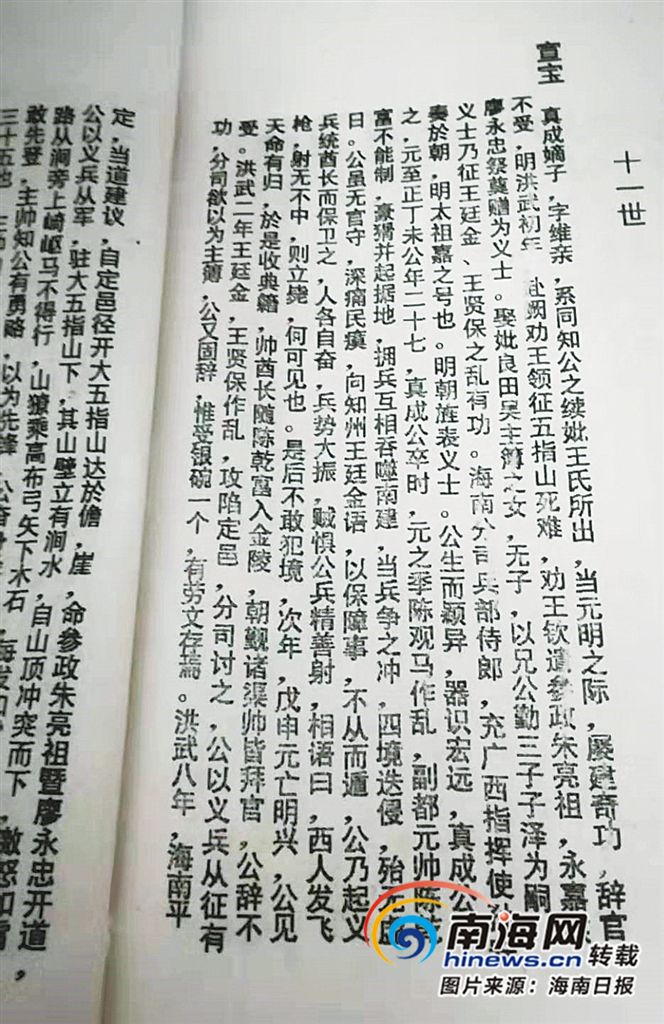 十一世
宣宝
真成嫡子，字维亲，系同知公之续妣王氏所出，当元明之际，屡建奇功，辞官
不受，明洪武初年 赴阙劝王领征五指山死难，劝王钦遣参政朱亮祖，永嘉
廖永忠祭奠赠为义士。娶妣良田吴主簿之女，无子，以兄公勤三子子泽为嗣
义士乃征王廷金、王贤保之乱有功。海南分司兵部侍郎，充广西指挥使
奏於朝，明太祖嘉之号也。明朝旌表义士。公生而颖异，器识宏远，真成公
之，元至正丁未公年二十七，真成公卒时，元之季陈观马作乱，副都元帅陈乾
富不能制，豪猾并起据地，拥兵互相吞噬南建，当兵争之冲，四境迭侵，殆无虚
日。公虽无官守，深痛民瘼，向知州王廷金语，以保障事，不从而遁，公乃起义
兵统酋长而保卫之，人各自奋，兵势大振，贼惧公兵精善射，相语曰，西人发飞
枪，射无不中，则立毙，何可见也。是后不敢犯境，次年，戊申元亡明兴，公见
天命有归，於是收典籍，帅酋长随陈乾富入金陵，朝觐诸渠帅皆拜官，公辞不
受。洪武二年王廷金，王贤保作乱，攻陷定邑，分司讨之，公以义兵从征有
功，分司欲以为主簿，公又固辞，惟受银碗一个，有劳文存焉。洪武八年，海南平
定，当道建议，自定邑径开大五指山达於儋，崖，命参政朱亮祖暨廖永忠开道
公以义兵从军，驻大五指山下，其山壁立有涧水，自山顶冲突而下，激怒如雷，
路从涧旁上崎岖马不得行，山獠乘高布弓矢下木石
敢先登，主帅知公有勇略，以为先锋，公奋
三十五也
南海网
hinews.cn 转载
图片来源：海南日报